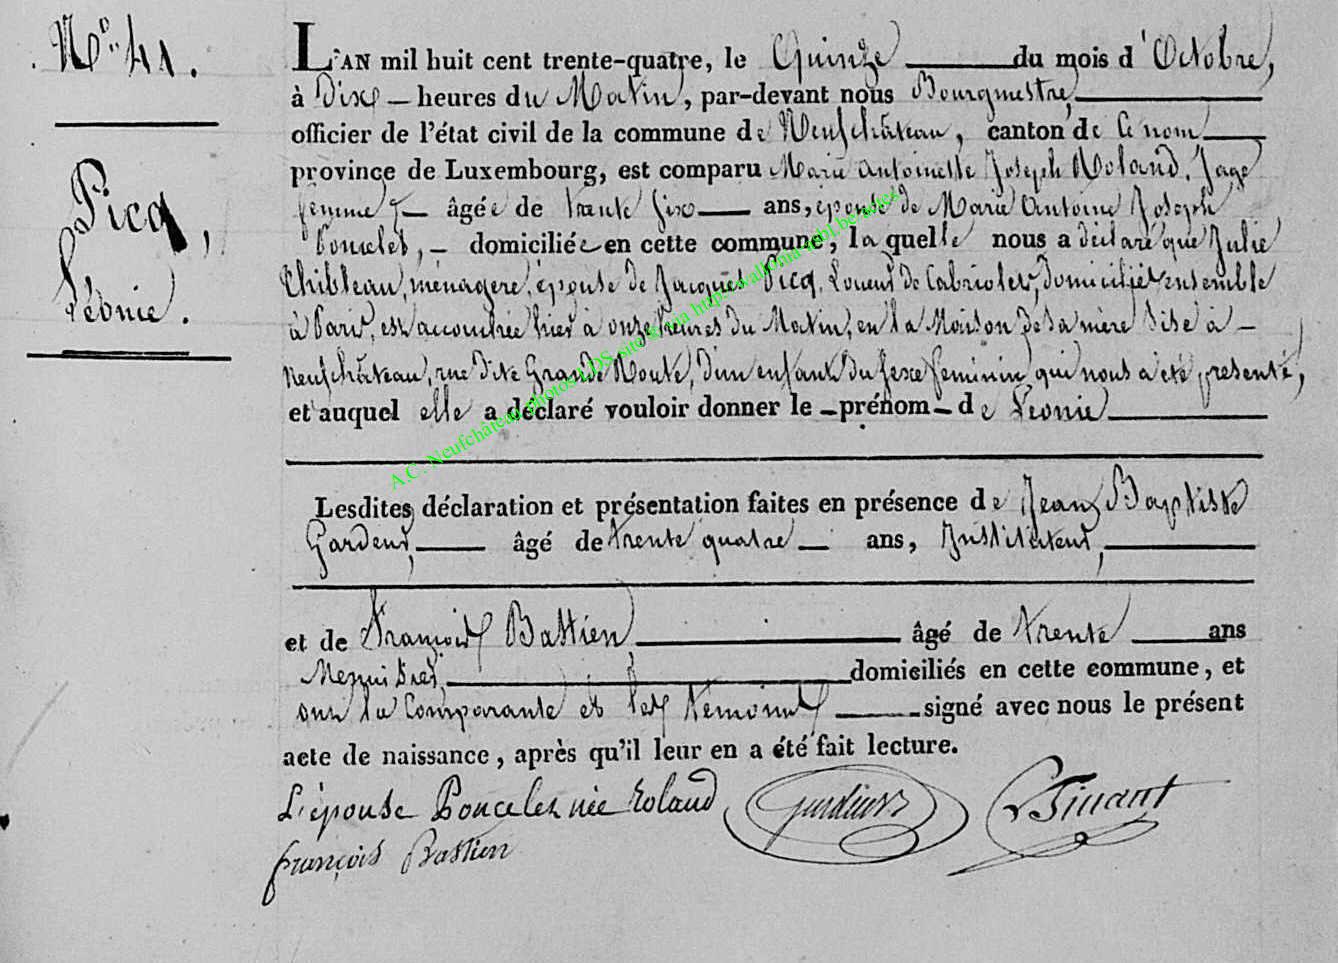 N° 41.
Picq,
Léonie.
L'AN mil huit cent trente-quatre, le Quinze du mois d'Octobre,
à Dix heures du Matin, par-devant nous Bourgmestre,
officier de l'état civil de la commune de Neufchâteau, canton de ce nom
province de Luxembourg, est comparu Marie Antoinette Joseph Roland, Sage
femme, âgée de trente six ans, épouse de Marie Antoine Joseph
Poncelet, domiciliée en cette commune, laquelle nous a déclaré que Julie
Thibleau, ménagère, épouse de Jacques Picq, Loueur de Cabriolets, domiciliés ensemble
à Paris, est accouchée hier à onze heures du Matin, en la Maison de sa mère Sise à
Neufchâteau, rue dite Grande Route, d'un enfant du sexe feminin, qui nous a été présenté,
et auquel elle a déclaré vouloir donner le prénom de Léonie
Lesdites déclaration et présentation faites en présence de Jean Baptiste
âgé de trente quatre ans, Instituteur,
et de François Bastien âgé de trente ans
domiciliés en cette commune, et
ont la Comparante et les témoins signé avec nous le présent
acte de naissance, après qu'il leur en a été fait lecture.
L'épouse Poncelez née Roland
françois Bastien
A.C. Neufchâteau photos LDS, site via http://